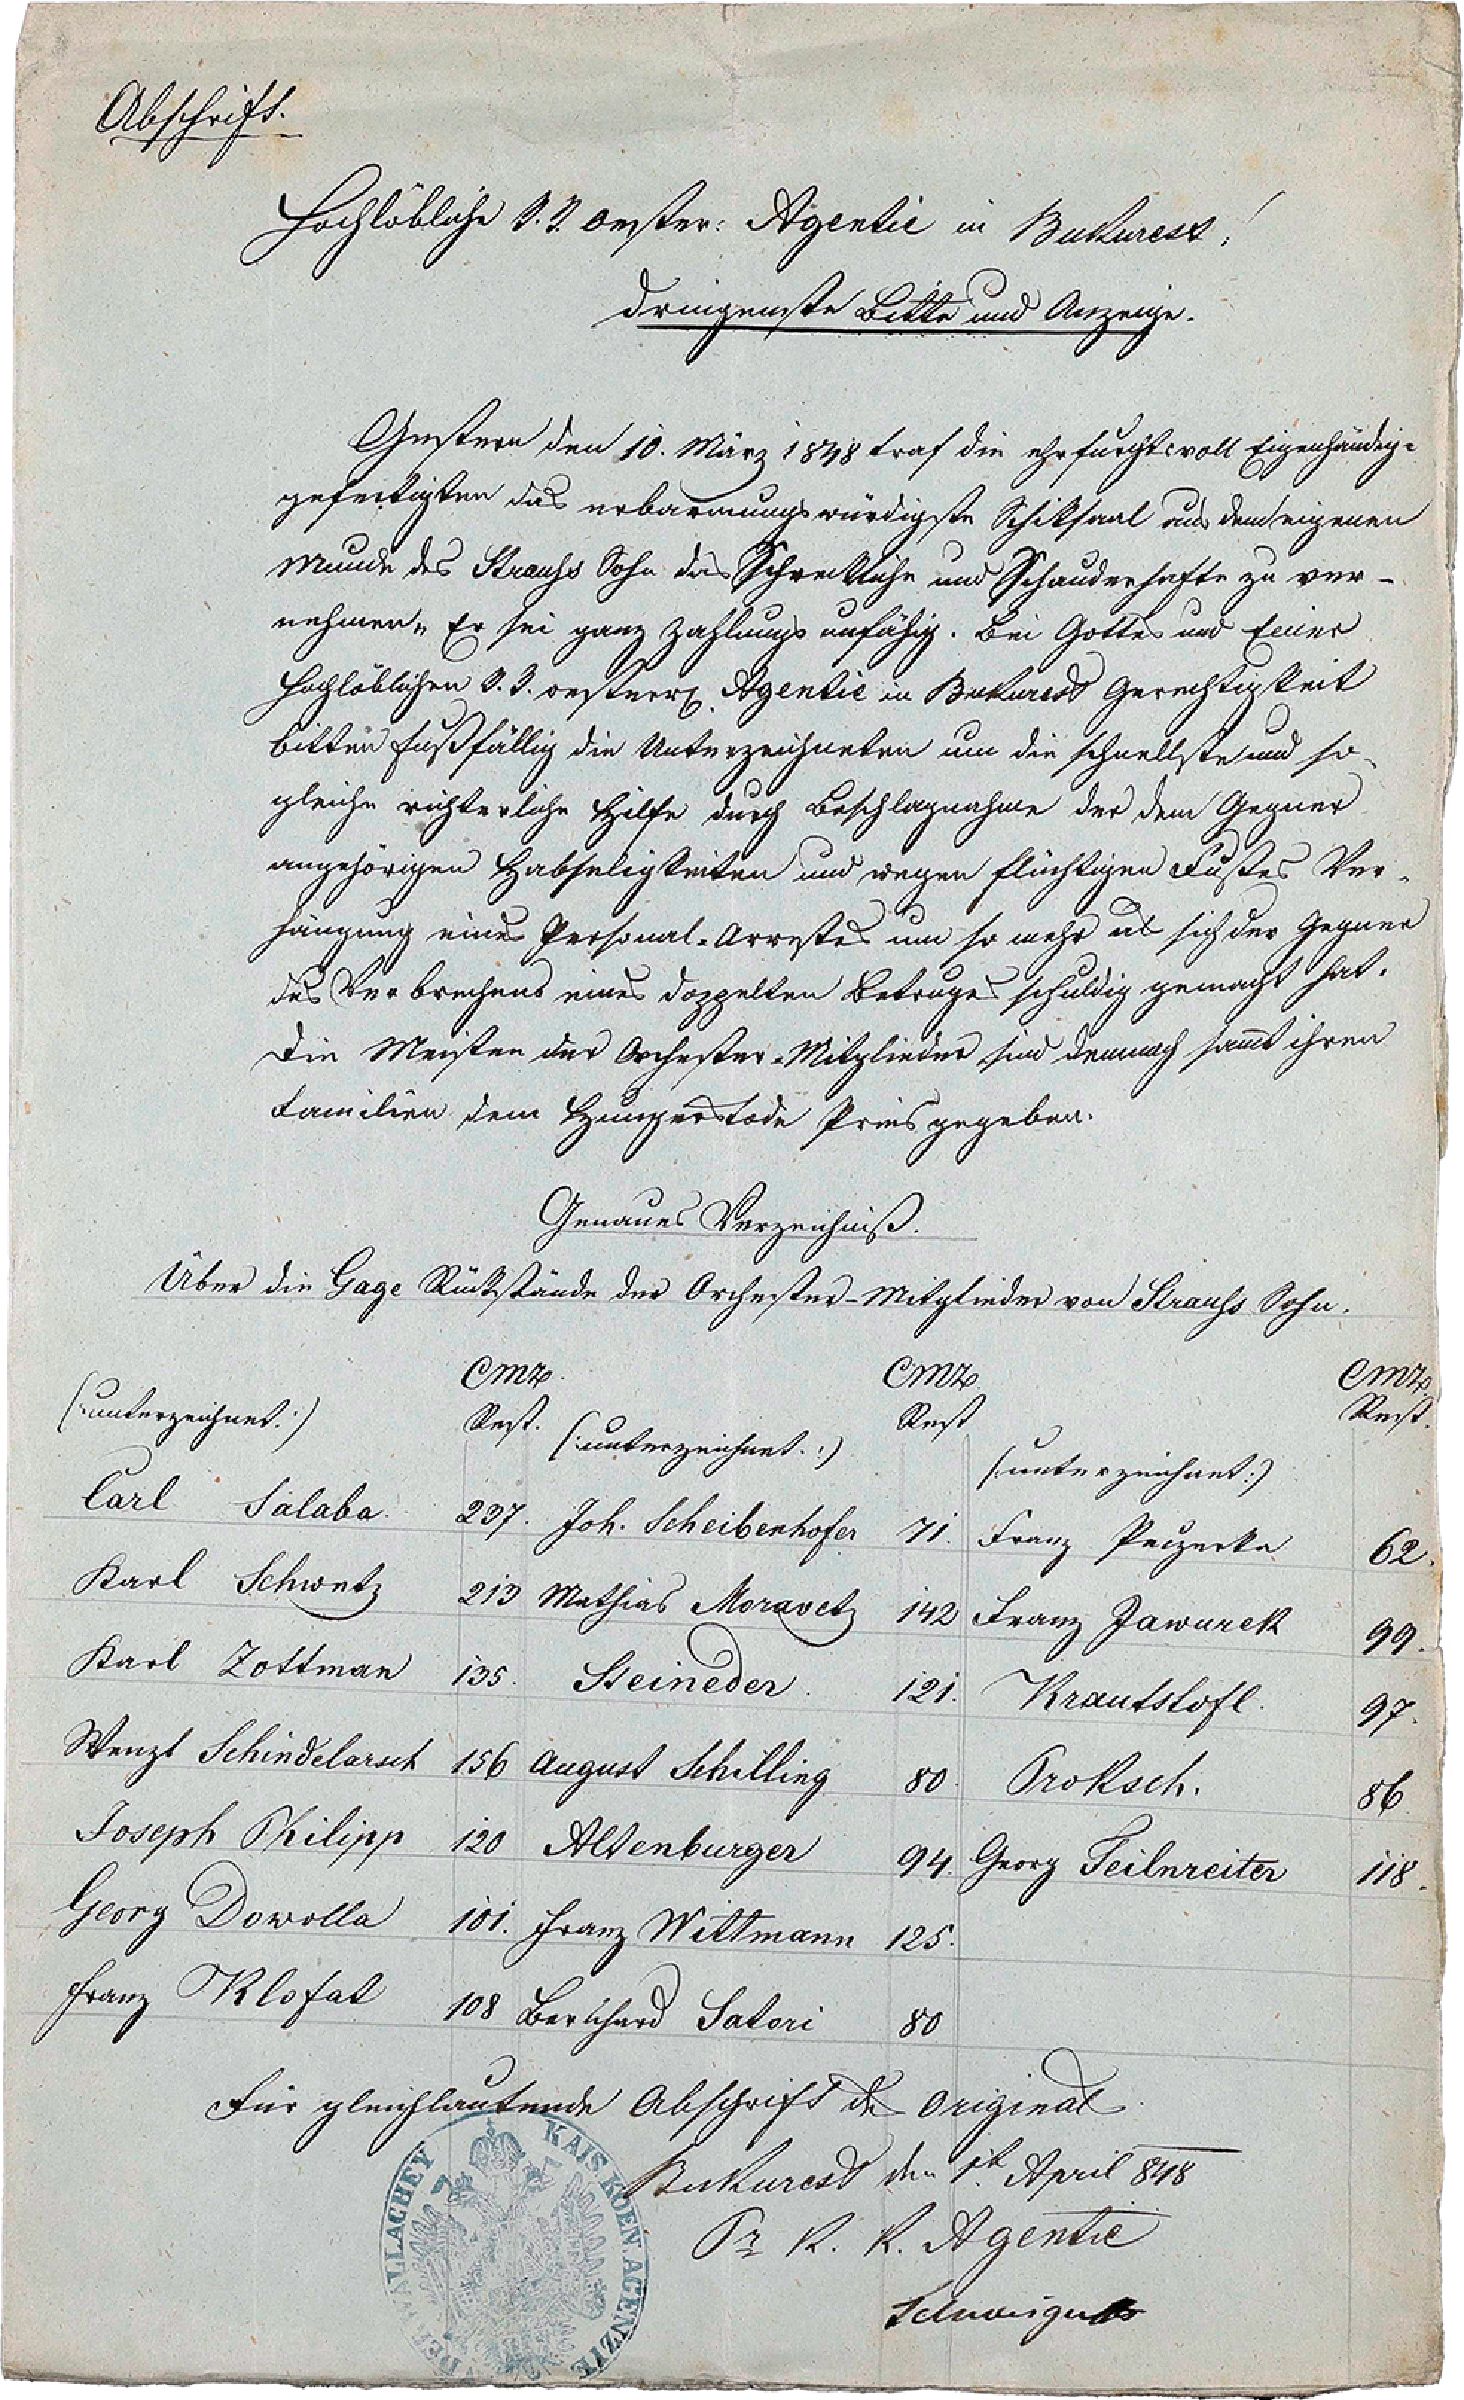 Abschrift.
Hochlöbliche k. k. oester: Agentie in Bukurest!
dringenste Bitte und Anzeige.
Gestern den 10. März 1848 traf die ehrfurchtsvoll Eigenhändig-
gefertigten das erbarmungswürdigste Schiksaal aus dem eigenen
Munde des Strauss Sohn das Schrekliche und Schauderhafte zu ver-
nehmen „ Er sei ganz zahlungsunfähig. Bei Gottes und Einer
Hochlöblichen k. k. oesterr. Agentie in Bukurest Gerechtigkeit
bitten fußfällig die Unterzeichneten um die schnellste und so-
gleiche richterliche Hilfe durch Beschlagnahme der dem Gegner
angehörigen Habseligkeiten und wegen flüchtigen Fußes Ver-
hängung eines Personal-Arrestes um so mehr als sich der Gegner
des Verbrechens eines doppelten Betruges schuldig gemacht hat.
Die Meisten der Orchester-Mitglieder sind demnach samt ihren
Familien dem Hungerstode Preis gegeben.
Genaues Verzeichniß.
Über die Gage Rückstände der Orchester-Mitglieder von Strauss Sohn.
(:unterzeichnet:) Rest. (:unterzeichnet:) Rest (:unterzeichnet:) Rest.
Carl Salaba 237. Joh. Scheibenhofer 71. Franz Peczerka 62.
Karl Schwetz 213 Mathias Moravetz 142 Franz Jawurek 99.
Karl Zottman 135. Steineder 121. Krautstofl 97.
Wenzl Schindelarsch 156 August Schilling 80. Proksch. 86.
Joseph Philipp 120 Altenburger 94. Georg Feilnreiter 118.
Georg Dowolla 101. Franz Wittmann 125.
Franz Klofat 108 Bernhard Satori 80
Für gleichlautende Abschrift des Original
Bukurest den 1t. April 848
Pr K. K. Agentie
KAIS. KOEN. AGENZIE
WALLACHEY